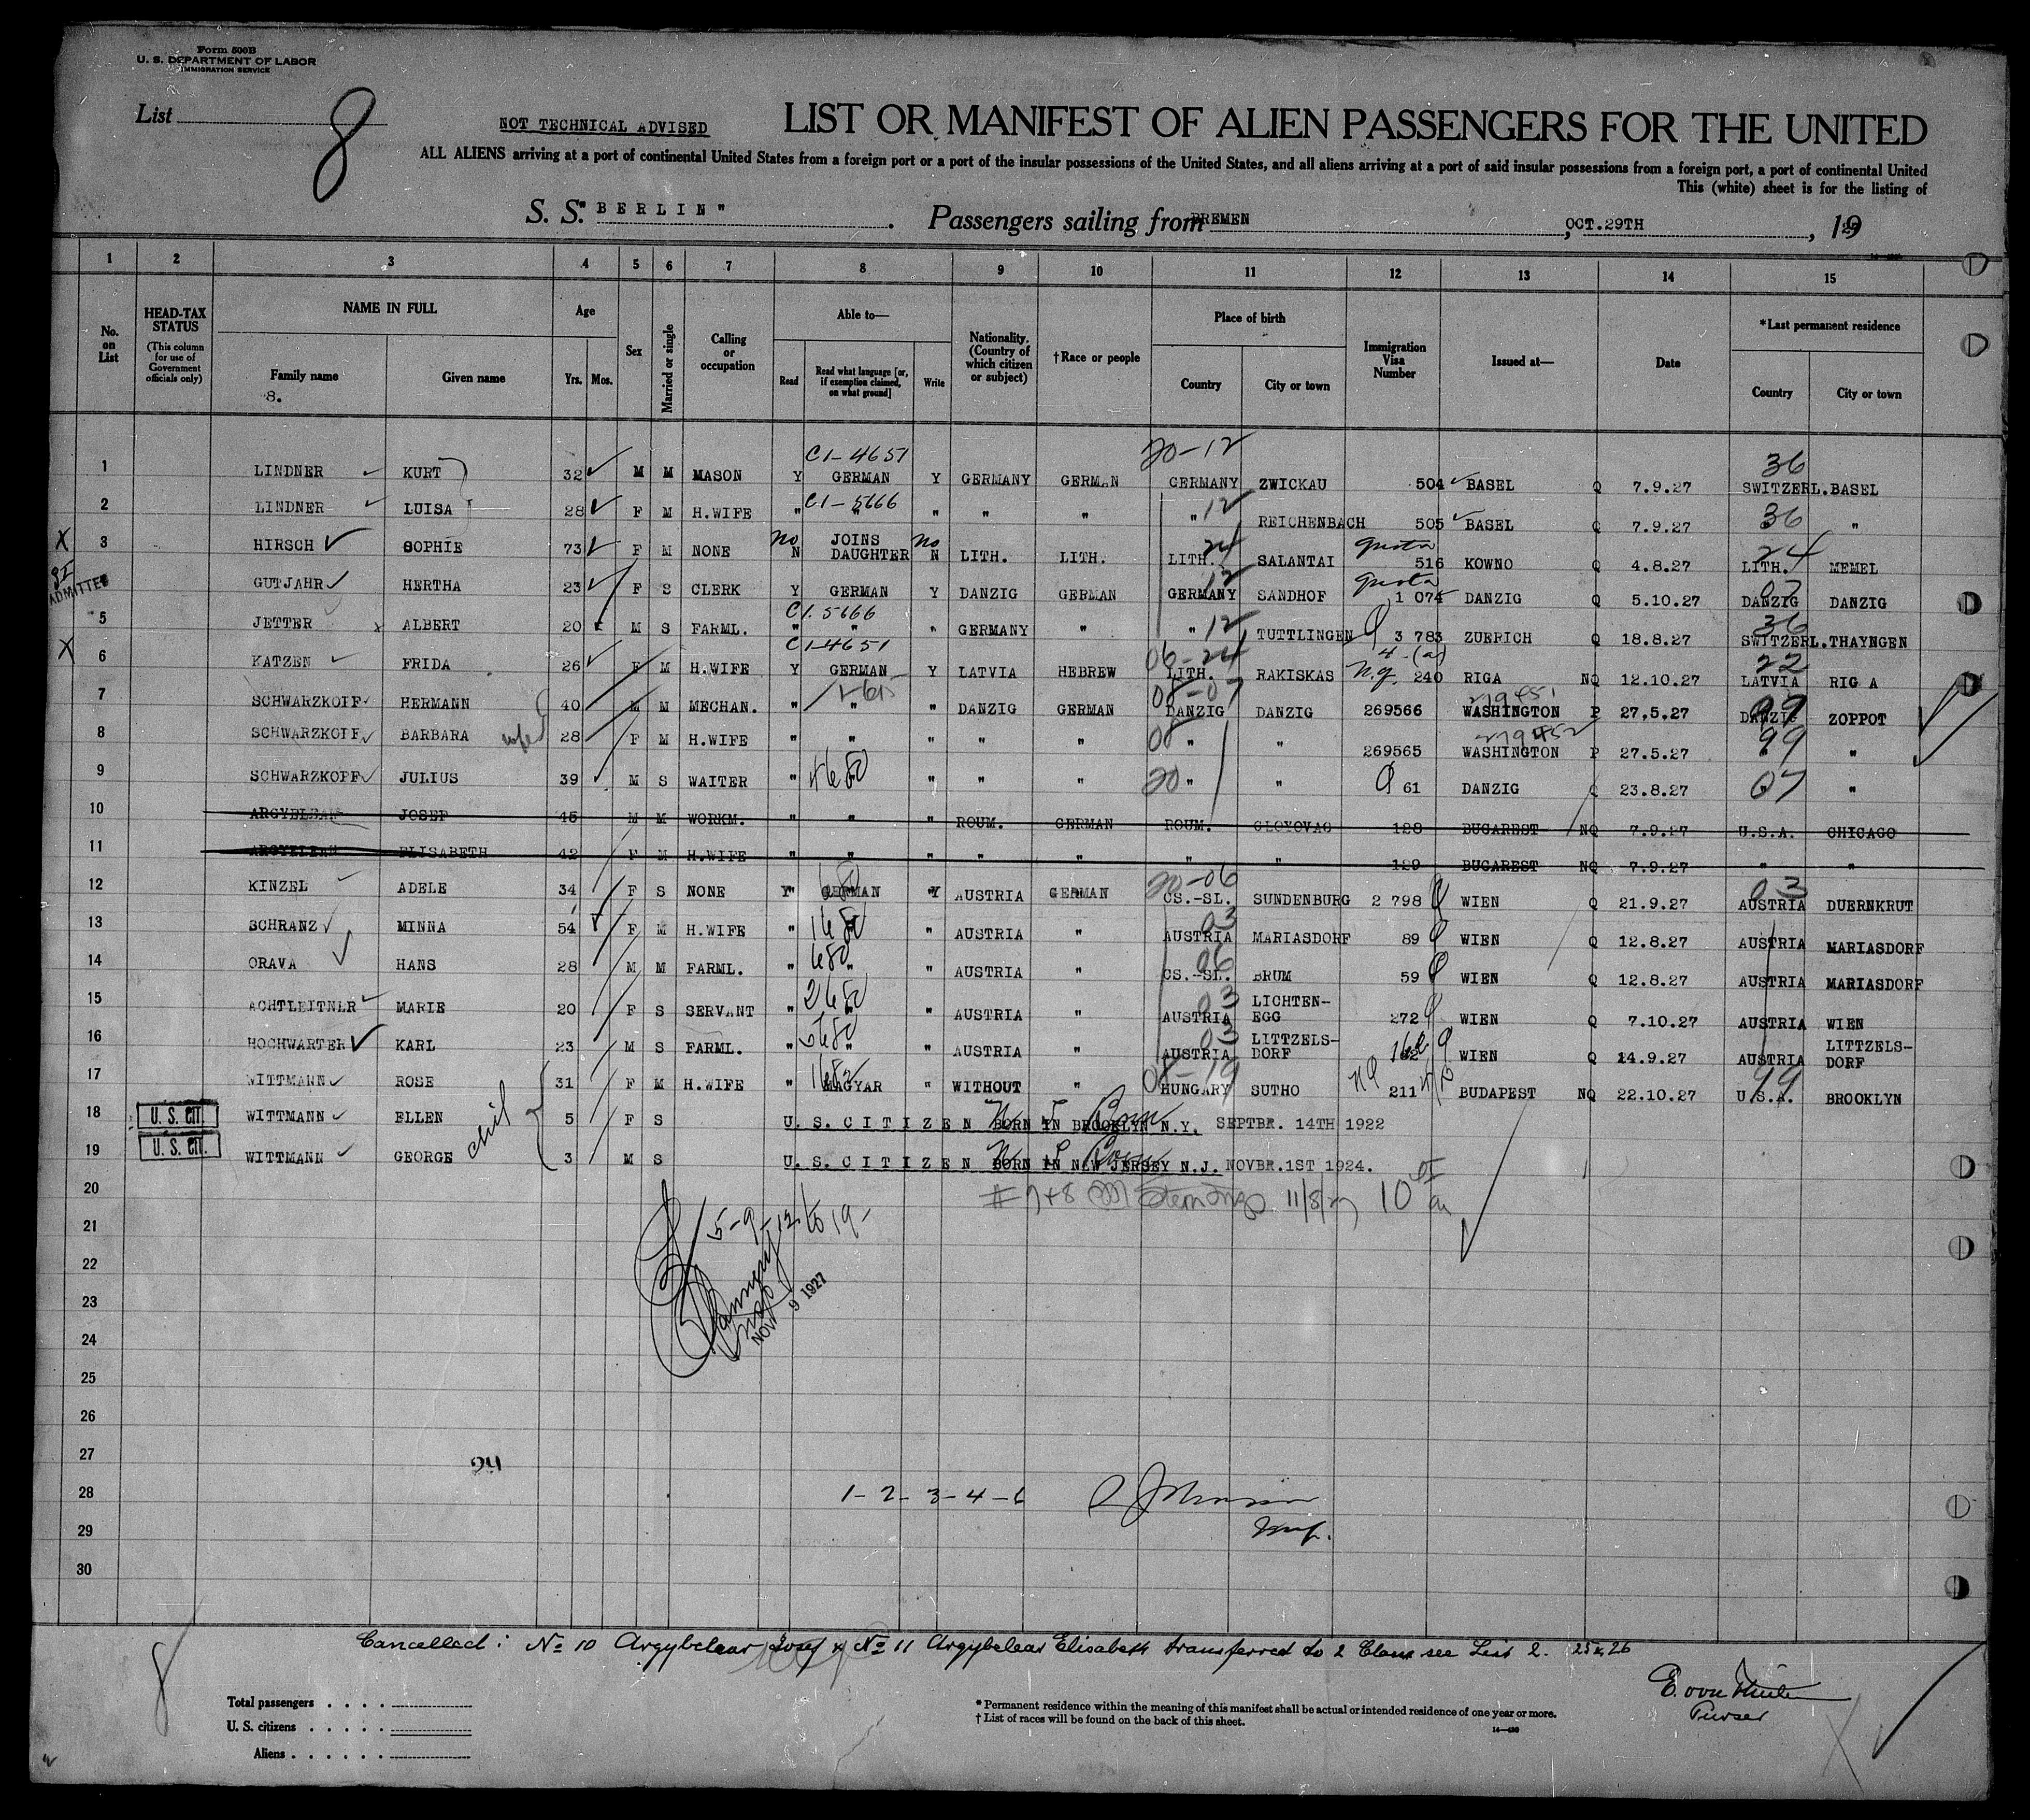 Form 500B
U. S. DEPARTMENT OF LABOR
IMMIGRATION SERVICE
List 8
NOT TECHNICAL ADVISED
LIST OR MANIFEST OF ALIEN PASSENGERS FOR THE UNITED
ALL ALIENS arriving at a port of continental United States from a foreign port or a port of the insular possessions of the United States, and all aliens arriving at a port of said insular possessions from a foreign port, a port of continental United
This (white) sheet is for the listing of
S. S. "BERLIN" . Passengers sailing from BREMEN , OCT.29TH , 19
1 2 3 4 5 6 7 8 9 10 11 12 13 14 15
No. on List HEAD-TAX STATUS (This column for use of Government officials only) NAME IN FULL Family name Given name Age Yrs. Mos. Sex Married or single Calling or occupation Able to— Read Read what language [or, if exemption claimed, on what ground] Write Nationality. (Country of which citizen or subject) †Race or people Place of birth Country City or town Immigration Visa Number Issued at— Date *Last permanent residence Country City or town
8.
C1-4651 20-12 36
1 LINDNER KURT 32 M M MASON Y GERMAN Y GERMANY GERMAN GERMANY ZWICKAU 504 BASEL Q 7.9.27 SWITZERL. BASEL
C1-5666 12 36
2 LINDNER LUISA 28 F M H.WIFE " " " " " " REICHENBACH 505 BASEL Q 7.9.27 "
X no no 24 quota 24
3 HIRSCH SOPHIE 73 F M NONE N JOINS DAUGHTER N LITH. LITH. LITH. SALANTAI 516 KOWNO Q 4.8.27 LITH. MEMEL
SI ADMITTED 12 quota 07
GUTJAHR HERTHA 23 F S CLERK Y GERMAN Y DANZIG GERMAN GERMANY SANDHOF 1 074 DANZIG Q 5.10.27 DANZIG DANZIG
C1.5666 12 36
5 JETTER x ALBERT 20 M S FARML. " " " GERMANY " " TUTTLINGEN Q 3 783 ZUERICH Q 18.8.27 SWITZERL. THAYNGEN
X C1-4651 06-24 4-(a) n.q. 22
6 KATZEN FRIDA 26 F M H.WIFE Y GERMAN Y LATVIA HEBREW LITH. RAKISKAS 240 RIGA NQ 12.10.27 LATVIA RIGA
08-07 99
7 SCHWARZKOPF HERMANN 40 M M MECHAN. " " " DANZIG GERMAN DANZIG DANZIG 269566 WASHINGTON P 27.5.27 DANZIG ZOPPOT
08 99
8 SCHWARZKOPF BARBARA 28 F M H.WIFE " " " " " " " 269565 WASHINGTON P 27.5.27 " "
20 07
9 SCHWARZKOPF JULIUS 39 M S WAITER " " " " " " " Q 61 DANZIG Q 23.8.27 " "
10 ARGYELEAN JOSEF 45 M M WORKM. " " " ROUM. GERMAN ROUM. GLOYOVAC 128 BUCAREST NQ 7.9.27 U.S.A. CHICAGO
11 ARGYELEAN ELISABETH 42 F M H.WIFE " " " " " " " 129 BUCAREST NQ 7.9.27 " "
680 20-06 03
12 KINZEL ADELE 34 F S NONE Y GERMAN Y AUSTRIA GERMAN CS.-SL. SUNDENBURG 2 798 Q WIEN Q 21.9.27 AUSTRIA DUERNKRUT
1680 03
13 SCHRANZ MINNA 54 F M H.WIFE " " " AUSTRIA " AUSTRIA MARIASDORF 89 Q WIEN Q 12.8.27 AUSTRIA MARIASDORF
680 06
14 ORAVA HANS 28 M M FARML. " " " AUSTRIA " CS.-SL. BRUM 59 Q WIEN Q 12.8.27 AUSTRIA MARIASDORF
2680 03
15 ACHTLEITNER MARIE 20 F S SERVANT " " " AUSTRIA " AUSTRIA LICHTEN-EGG 272 Q WIEN Q 7.10.27 AUSTRIA WIEN
5680 03
16 HOCHWARTER KARL 23 M S FARML. " " " AUSTRIA " AUSTRIA LITTZELS-DORF Q WIEN Q 14.9.27 AUSTRIA LITTZELS-DORF
1682 08-19 NQ 99
17 WITTMANN ROSE 31 F M H.WIFE " MAGYAR " WITHOUT " HUNGARY SUTHO 211 BUDAPEST NQ 22.10.27 U.S.A. BROOKLYN
18 U. S. CIT. WITTMANN ELLEN 5 F S U.S.CITIZEN BORN IN BROOKLYN N.Y. SEPTBR. 14TH 1922
19 U. S. CIT. WITTMANN GEORGE 3 M S U.S.CITIZEN BORN IN NEW JERSEY N.J. NOVBR.1ST 1924.
20 #7+8 11/8/27 10
21 5-9-12 to 19-
22
23 NOV 9 1927
24
25
26
27
29
28 1-2-3-4-6
29
30
Cancelled: No 10 Argybelear Josef & No 11 Argybelear Elisabeth transferred to 2 Class see List 2. 25 & 26
8
Total passengers
U. S. citizens
Aliens
* Permanent residence within the meaning of this manifest shall be actual or intended residence of one year or more.
† List of races will be found on the back of this sheet.
14—430
Purser